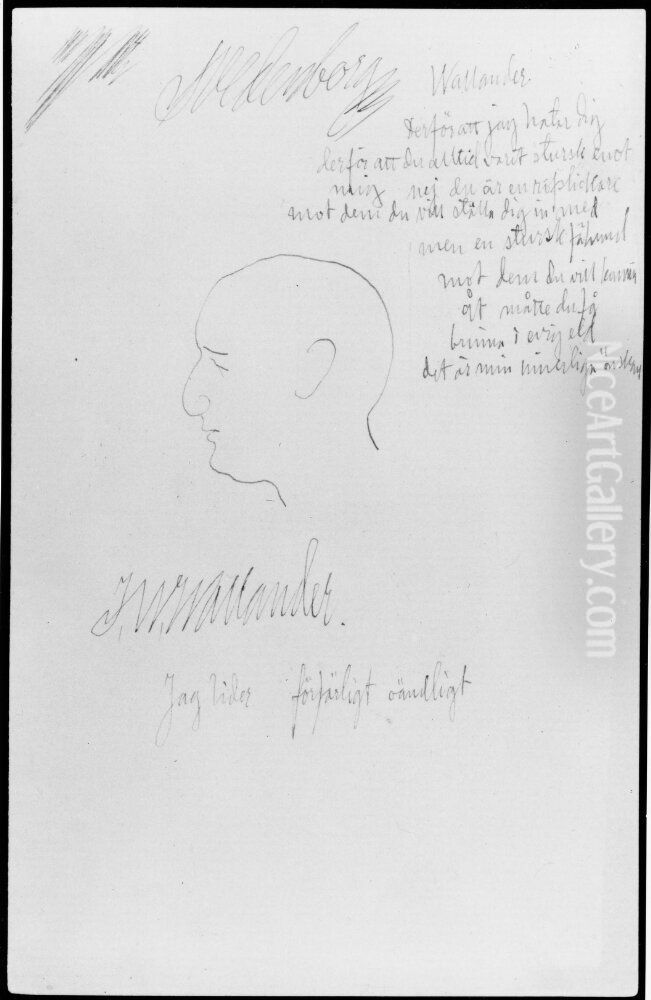 Swedenborg
Wallander.
Derför att jag hatar dig
derför att du alltid varit stursk emot
mig nej du är en
mot dem du vill ställa dig in med
men en stursk
mot dem du vill
åt måtte du få
brinna i evig eld
det är min innerliga önskan
J. W. Wallander.
Jag lider förfärligt oändligt
NiceArtGallery.com